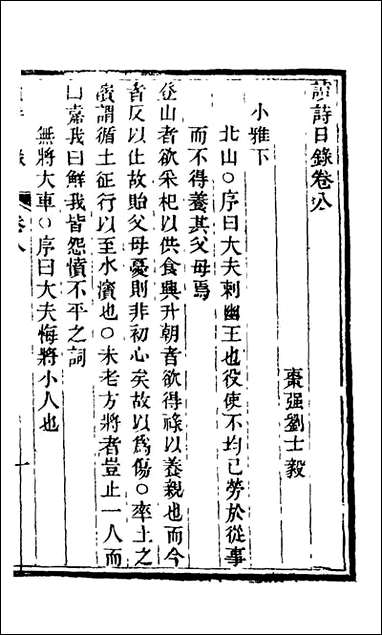 讀詩日錄卷八
棗强劉士毅
小雅下
北山○序曰大夫刺幽王也役使不均已勞於從事
而不得養其父母焉
登山者欲采杞以供食興升朝者欲得祿以養親也而今
者反以仕故貽父母憂則非初心矣故以爲傷○率土之
濱謂循土征行以至水濱也○未老方將者豈止一人而
曰嘉我曰鮮我皆怨憤不平之詞
無將大車○序曰大夫悔將小人也
卷八
一